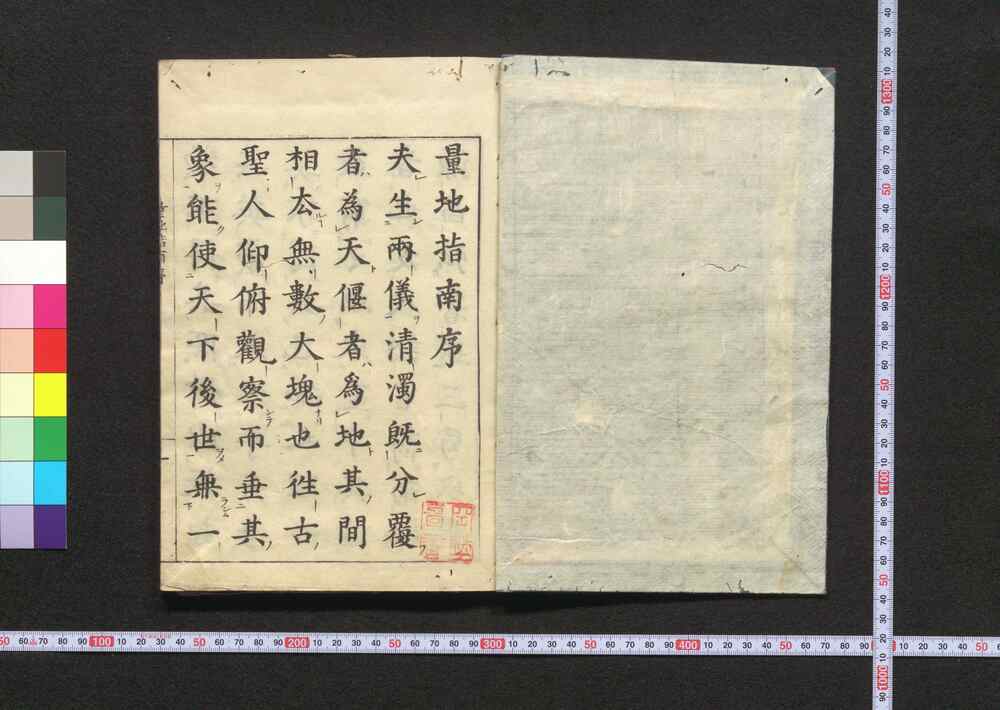 量地指南序
夫生兩儀清濁既分覆
者為天偃者為地其間
相厺無數大塊也徃古
聖人仰俯觀察而垂其
象能使天下後世無一